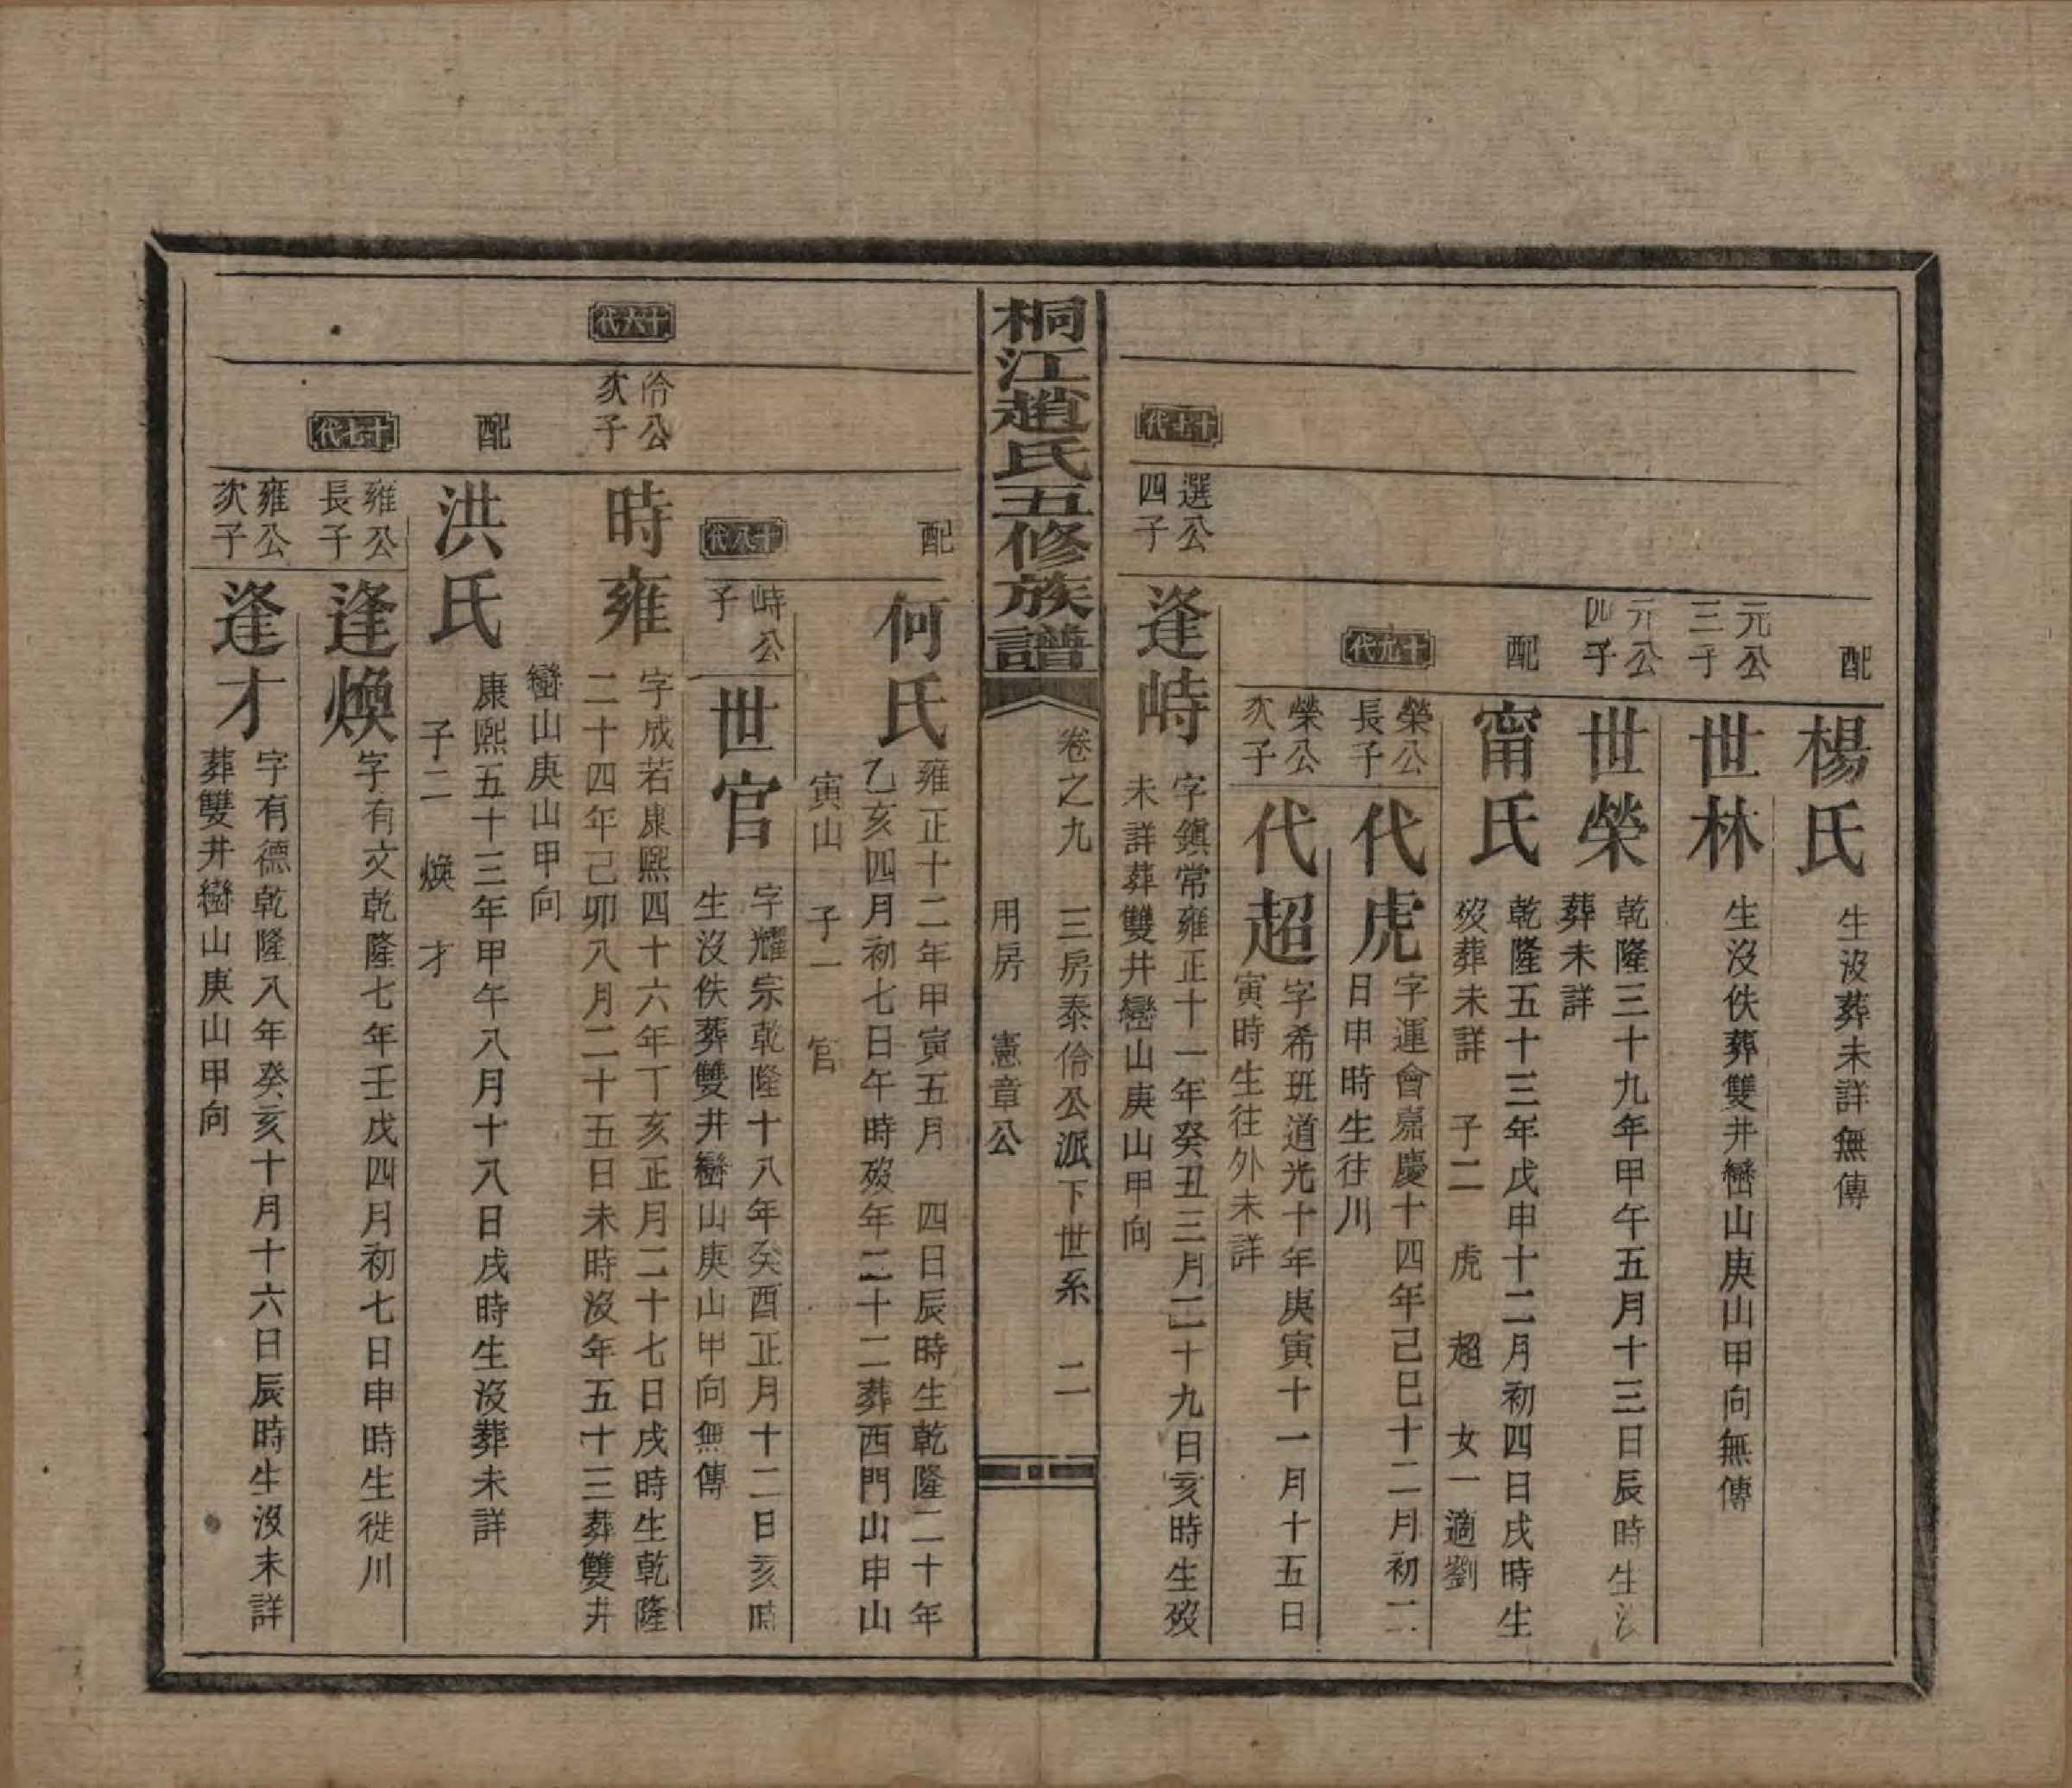 配
楊氏
生沒葬未詳無傳
元公
三子
世林
生沒佚葬雙井巒山庚山甲向無傳
元公
四子
世榮
乾隆三十九年甲午五月十三日辰時生
葬未詳
配
甯氏
乾隆五十三年戊申十二月初四日戌時生
歿葬未詳 子二 虎 超 女一適劉
十九代
榮公
長子
代虎
字運會嘉慶十四年己巳十二月初二
日申時生往川
榮公
次子
代超
字希班道光十年庚寅十一月十五日
寅時生往外未詳
十七代
選公
四子
逢峙
字鎮常雍正十一年癸丑三月二十九日亥時生歿
未詳葬雙井巒山庚山甲向
桐江趙氏五修族譜
卷之九 三房泰伶公派下世系 二
用房 憲章公
配
何氏
雍正十二年甲寅五月 四日辰時生乾隆二十年
乙亥四月初七日午時歿年二十二葬西門山申山
寅山 子一 官
十八代
峙公
子
世官
字耀宗乾隆十八年癸酉正月十二日亥時
生沒佚葬雙井巒山庚山甲向無傳
十六代
伶公
次子
時雍
字成若康熙四十六年丁亥正月二十七日戌時生乾隆
二十四年己卯八月二十五日未時沒年五十三葬雙井
巒山庚山甲向
配
洪氏
康熙五十三年甲午八月十八日戌時生沒葬未詳
子二 煥 才
十七代
雍公
長子
逢煥
字有文乾隆七年壬戌四月初七日申時生徙川
雍公
次子
逢才
字有德乾隆八年癸亥十月十六日辰時生沒未詳
葬雙井巒山庚山甲向